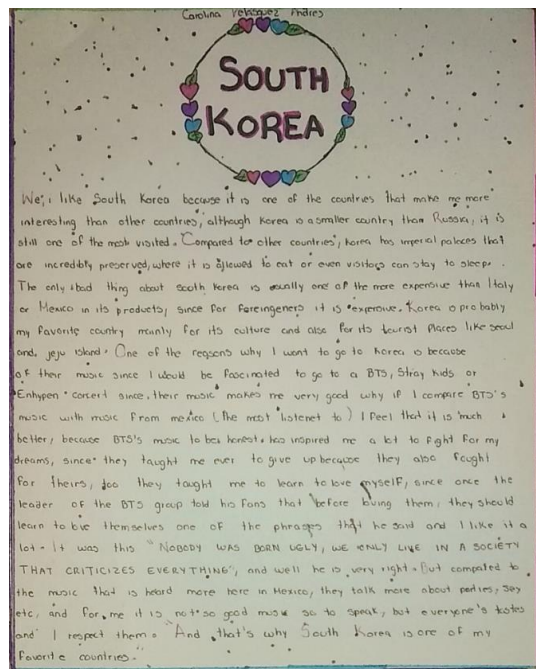 Carolina Velasquez Andres
SOUTH
KOREA
We, i like South Korea because it is one of the countries that make me more
interesting than other countries, although Korea is a smaller country than Russia, it is
still one of the most visited. Compared to other countries, Korea has imperial palaces that
are incredibly preserved, where it is allowed to eat or even visitors can stay to sleep.
The only bad thing about south Korea is equally one of the more expensive than Italy
or Mexico in its products, since for foreingeners it is expensive. Korea is probably
my favorite country mainly for its culture and also for its tourist places like seoul
and jeju island. One of the reasons why I want to go to Korea is because
of their music since I would be fascinated to go to a BTS, Stray kids or
Enhypen concert since, their music makes me very good why if I compare BTS's
music with music from mexico (the most listenet to) I feel that it is much
better, because BTS's music to be honest, has inspired me a lot to fight for my
dreams, since they taught me ever to give up because they also fought
for theirs, too they taught me to learn to love myself, since once the
leader of the BTS group told his fans that before loving them, they should
learn to love themselves one of the phrases that he said and I like it a
lot. It was this "NOBODY WAS BORN UGLY, WE ONLY LIVE IN A SOCIETY
THAT CRITICIZES EVERYTHING", and well he is very right. But compated to
the music that is heard more here in Mexico, they talk more about parties, sex
etc, and for me it is not so good music so to speak, but everyone's tastes
and I respect them. "And that's why South Korea is one of my
favorite countries."